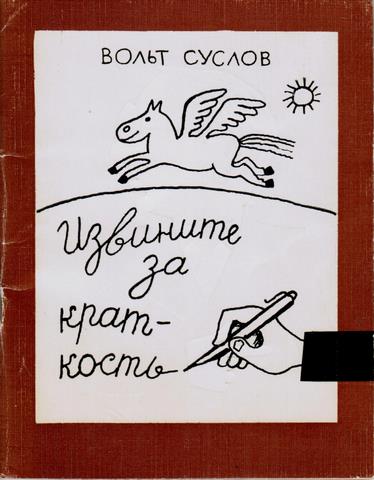 ВОЛЬТ СУСЛОВ
Извините
за
крат-
кость